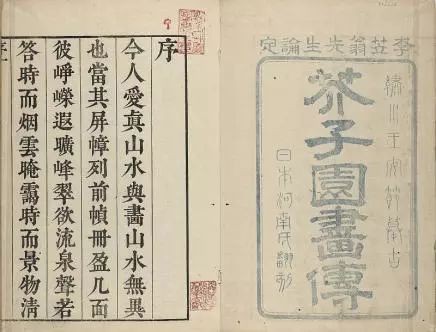 李笠翁先生論定
繡水王安節摹古
芥子園畫傳
日本河南氏翻刻
序
今人愛眞山水與畫山水無異
也當其屏幛列前幀冊盈几面
彼崢嶸遐曠峰翠欲流泉聲若
答時而烟雲晻靄時而景物清
序